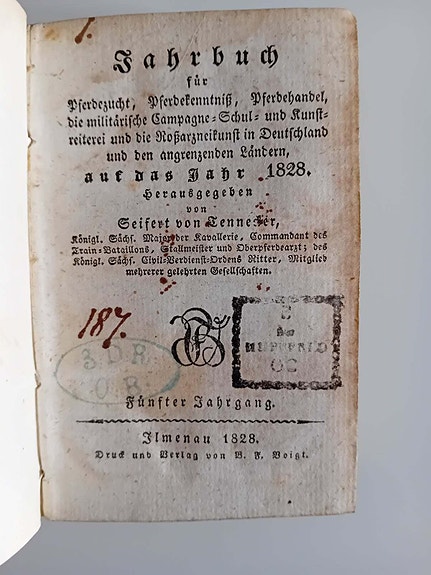 1.
Jahrbuch
für
Pferdezucht, Pferdekenntniß, Pferdehandel,
die militärische Campagne-Schul- und Kunst-
reiterei und die Roßarzneikunst in Deutschland
und den angrenzenden Ländern,
auf das Jahr 1828.
Herausgegeben
von
Seifert von Tennecker,
Königl. Sächs. Major der Kavallerie, Commandant des
Train-Bataillons, Stallmeister und Oberpferdearzt; des
Königl. Sächs. Civil-Verdienst-Ordens Ritter, Mitglied
mehrerer gelehrten Gesellschaften.
187.
3. D.R.
O.B.
Fünfter Jahrgang.
Ilmenau 1828.
Druck und Verlag von B. F. Voigt.